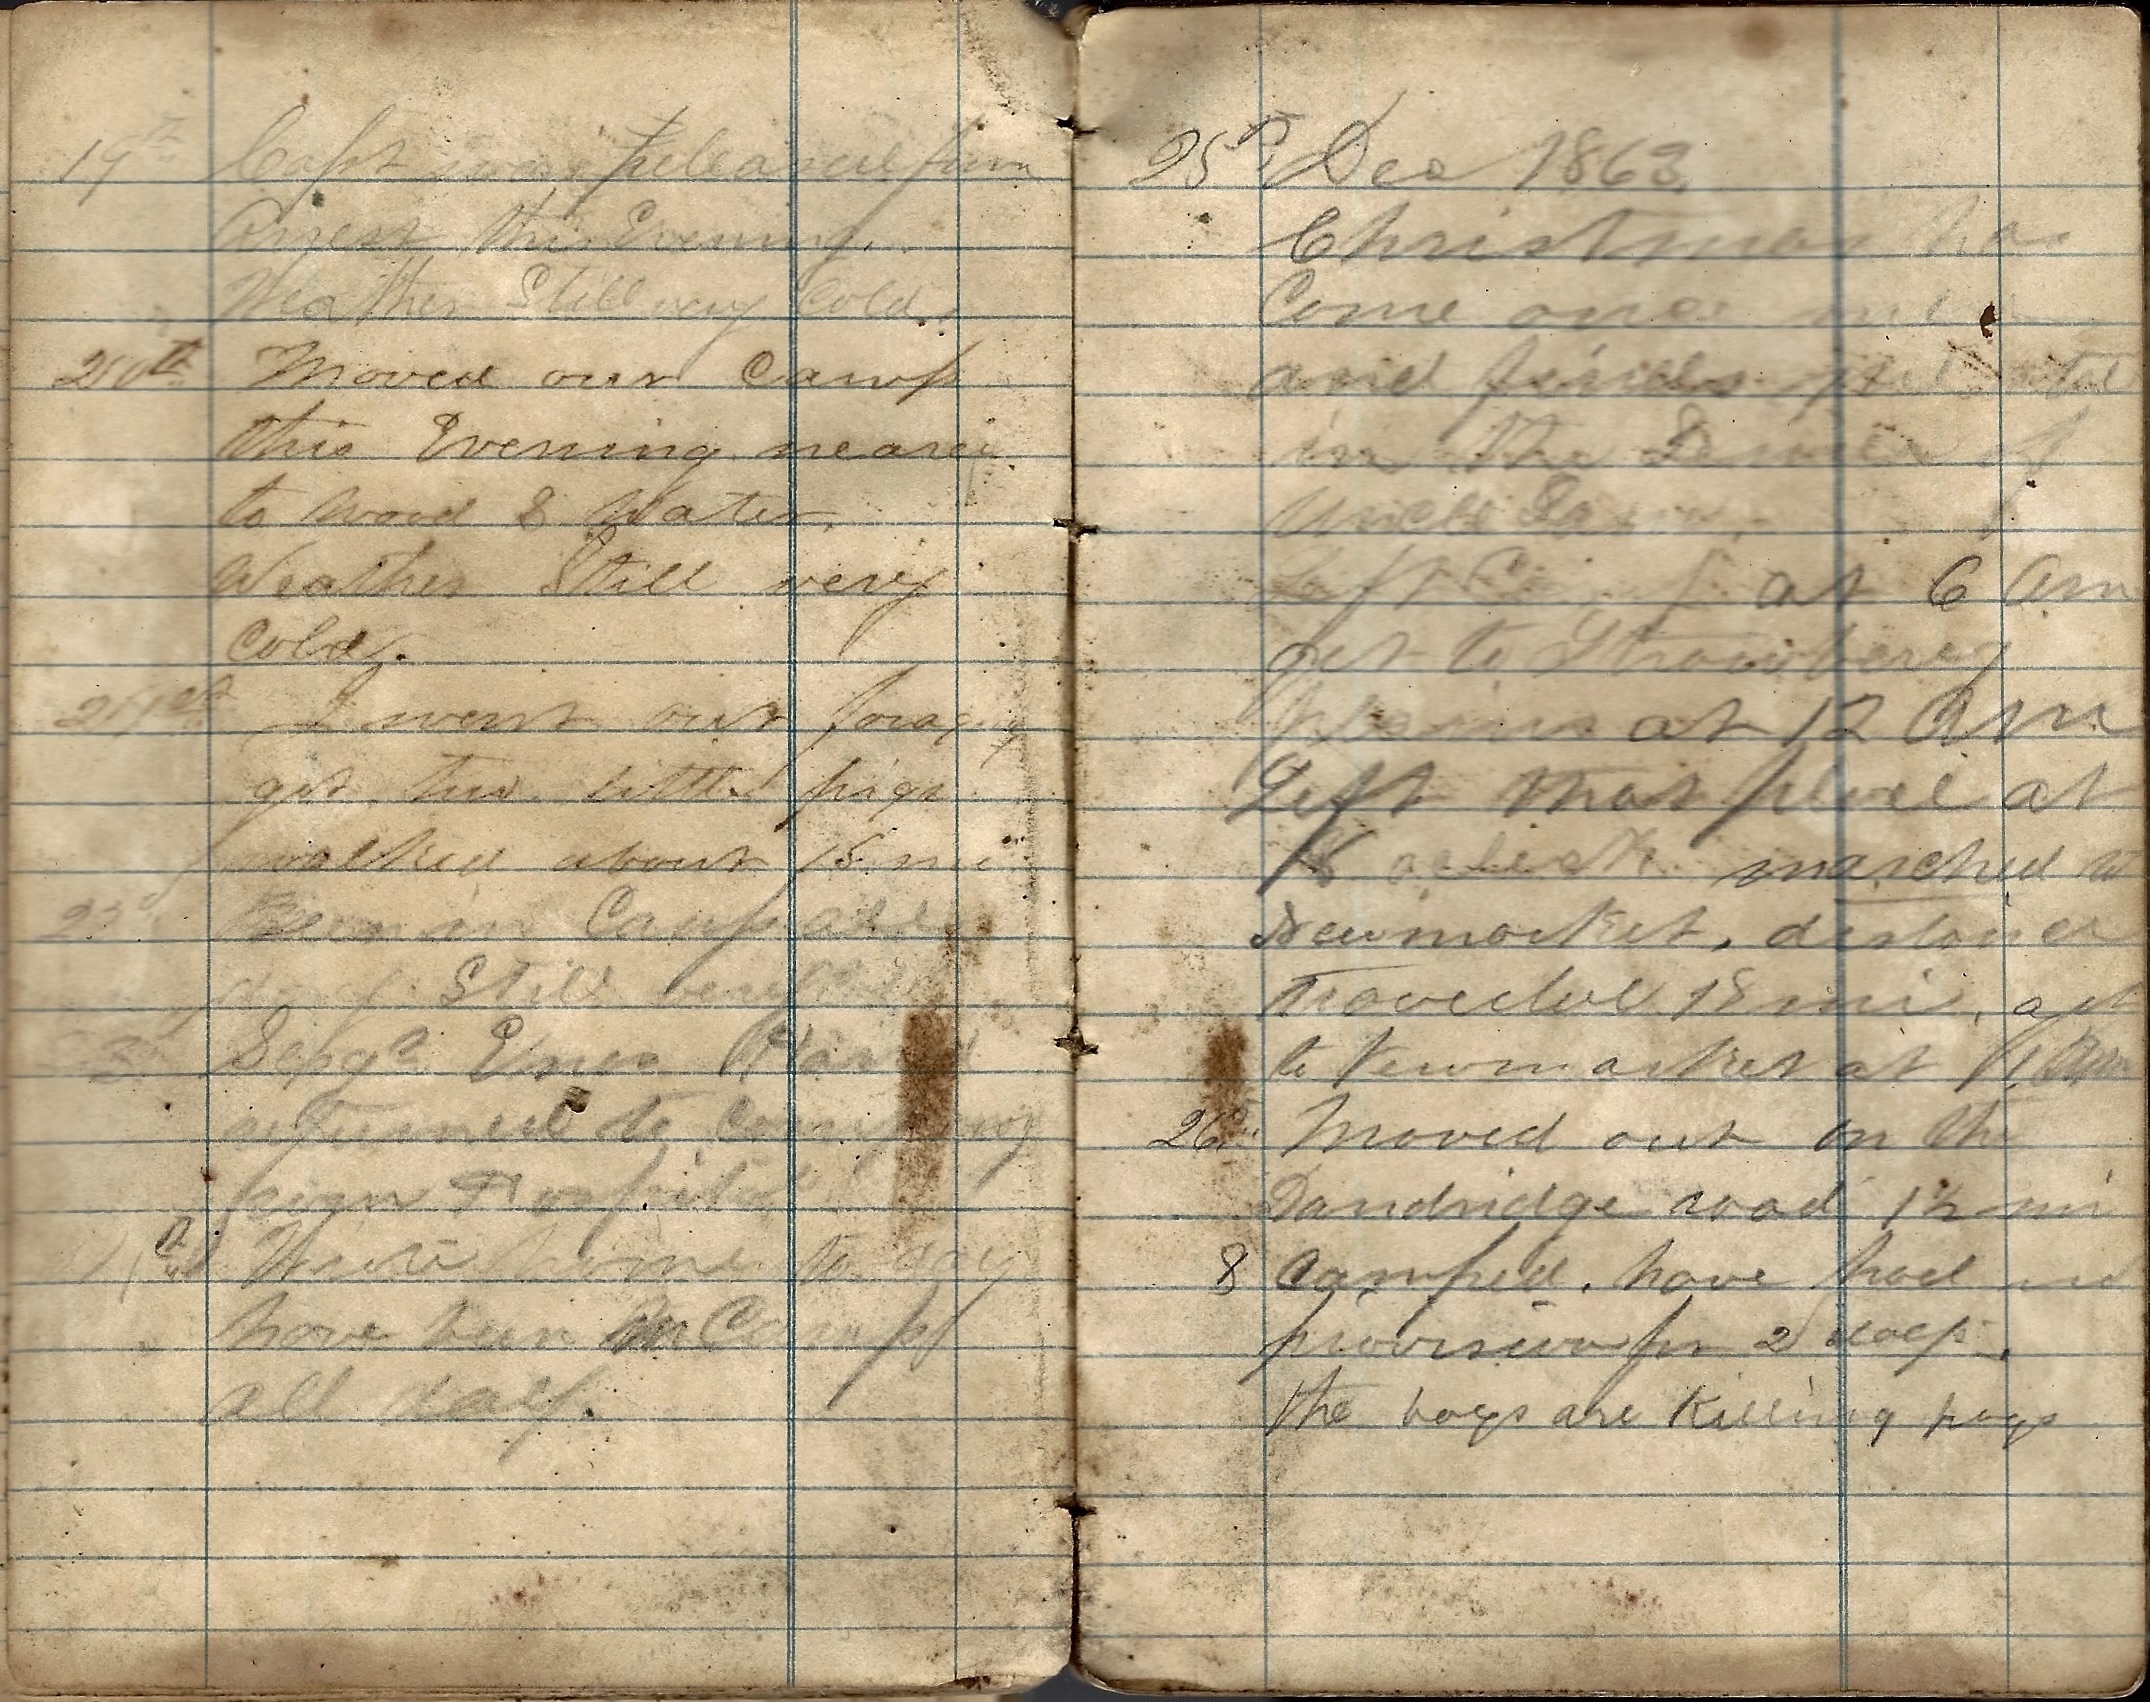 19th Capt was released from
Arrest this Evening.
Weather Still very Cold.
20th Moved our Camp
this Evening nearer
to wood & water.
Weather Still very
Cold.
21st I went out foraging
got two little pigs
walked about 15 mi
22d Been in Camp all
day Still very
23 Sergt Enos
returned to Company
from Hospital
Wrote home to day
have been in Camp
all day.
25th Dec 1863.
Christmas has
Come once
and finds me
in the Service of
Uncle Sam.
Left Camp at 6 Am
got to Strawberry
Plains at 12 Am
Left that place at
oclock marched to
Newmarket, distance
traveled 15 mi, got
to Newmarket at
26th Moved out on the
Dandridge road 1½ mi
& Camped. have had no
provision for 2 days.
the boys are Killing hogs